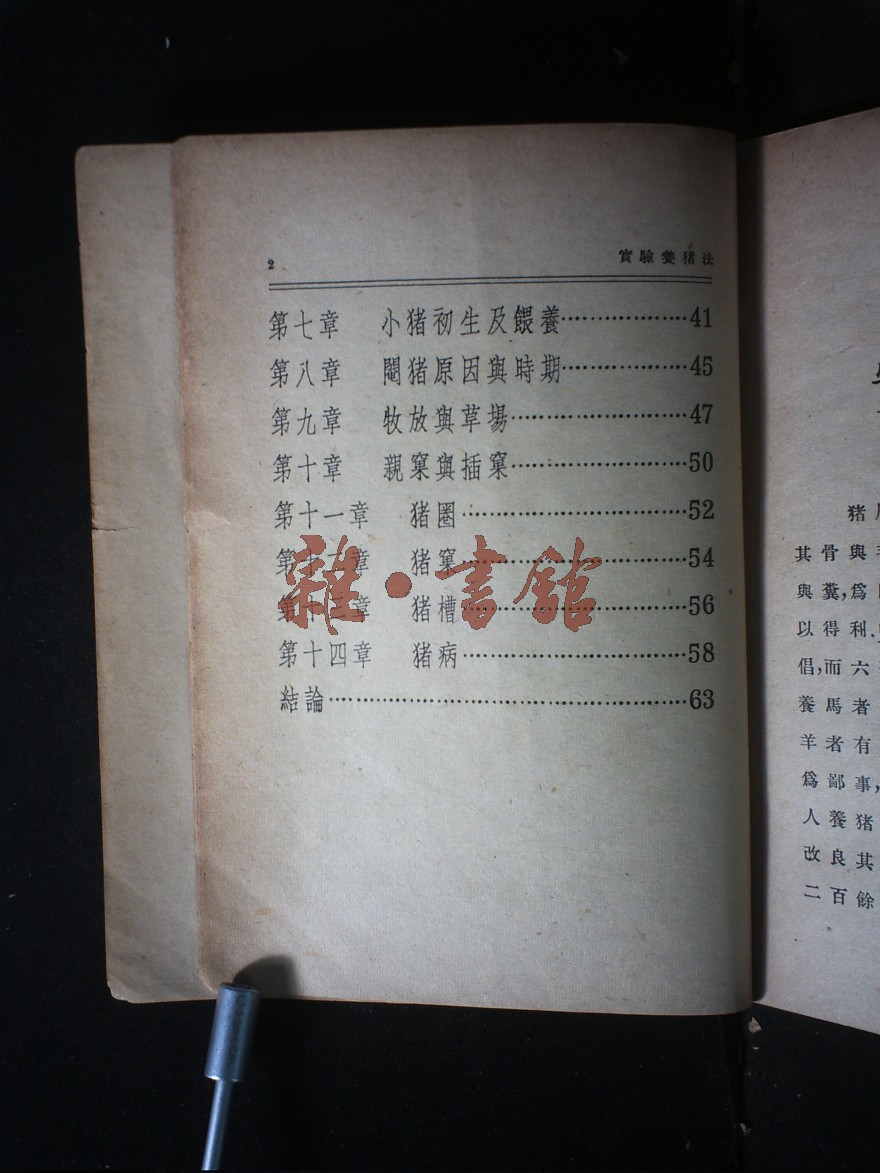 2 實驗養猪法
第七章 小猪初生及餵養⋯⋯⋯⋯⋯⋯41
第八章 閹猪原因與時期⋯⋯⋯⋯⋯⋯45
第九章 牧放與草場⋯⋯⋯⋯⋯⋯47
第十章 親窠與插窠⋯⋯⋯⋯⋯⋯50
第十一章 猪圈⋯⋯⋯⋯⋯⋯52
第十二章 猪窠⋯⋯⋯⋯⋯⋯54
第十三章 猪槽⋯⋯⋯⋯⋯⋯56
第十四章 猪病⋯⋯⋯⋯⋯⋯58
結論⋯⋯⋯⋯⋯⋯63
雜·書館
猪
其骨與
與糞,爲
以得利.
倡,而六
養馬者
羊者有
爲鄙事,
人養猪
改良其
二百餘